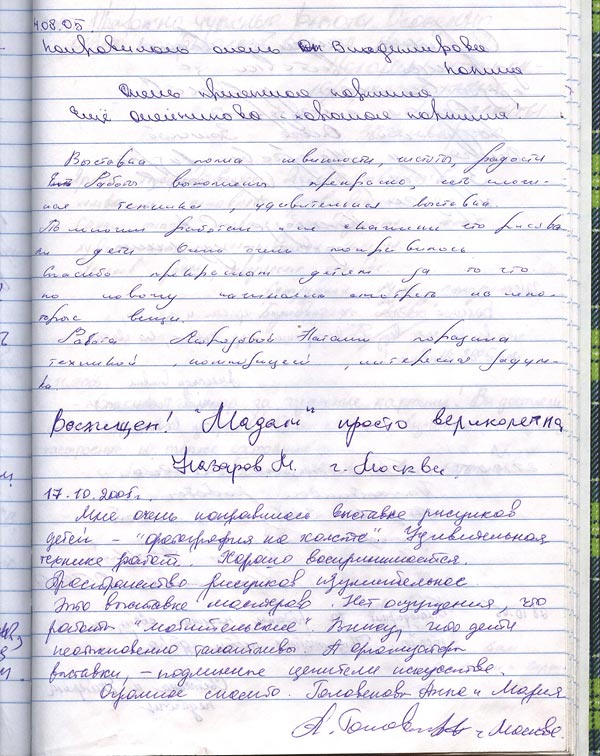 08.05.
понравилась очень Владимировна
очень приятная картина
Ещё хорошая картина!
Выставка полна невинности, чистоты, радости
Работы выполнены прекрасно, 
ная техника, удивительная выставка.
По многим работам не скажешь что рисова-
ли дети очень понравилось
Спасибо прекрасным детям за то что
по новому начинаешь смотреть на неко-
торые вещи.
Работа Натальи поразила
техникой, композицией, интересная задум-
ка
Восхищен! "Мадам" просто великолепна
Назаров М. г. Москва.
17.10.2005г.
Мне очень понравилась выставка рисунков
детей – "фотография на холсте". Удивительная
техника работ. Хорошо воспринимается.
Пространство рисунков изумительное
Это выставка мастеров. Нет ощущения, что
работы "любительские". Вижу, что дети
необыкновенно талантливы. А организаторы
выставки, – подлинные ценители искусства.
Огромное спасибо. Анна и Мария
А. г. Москва.